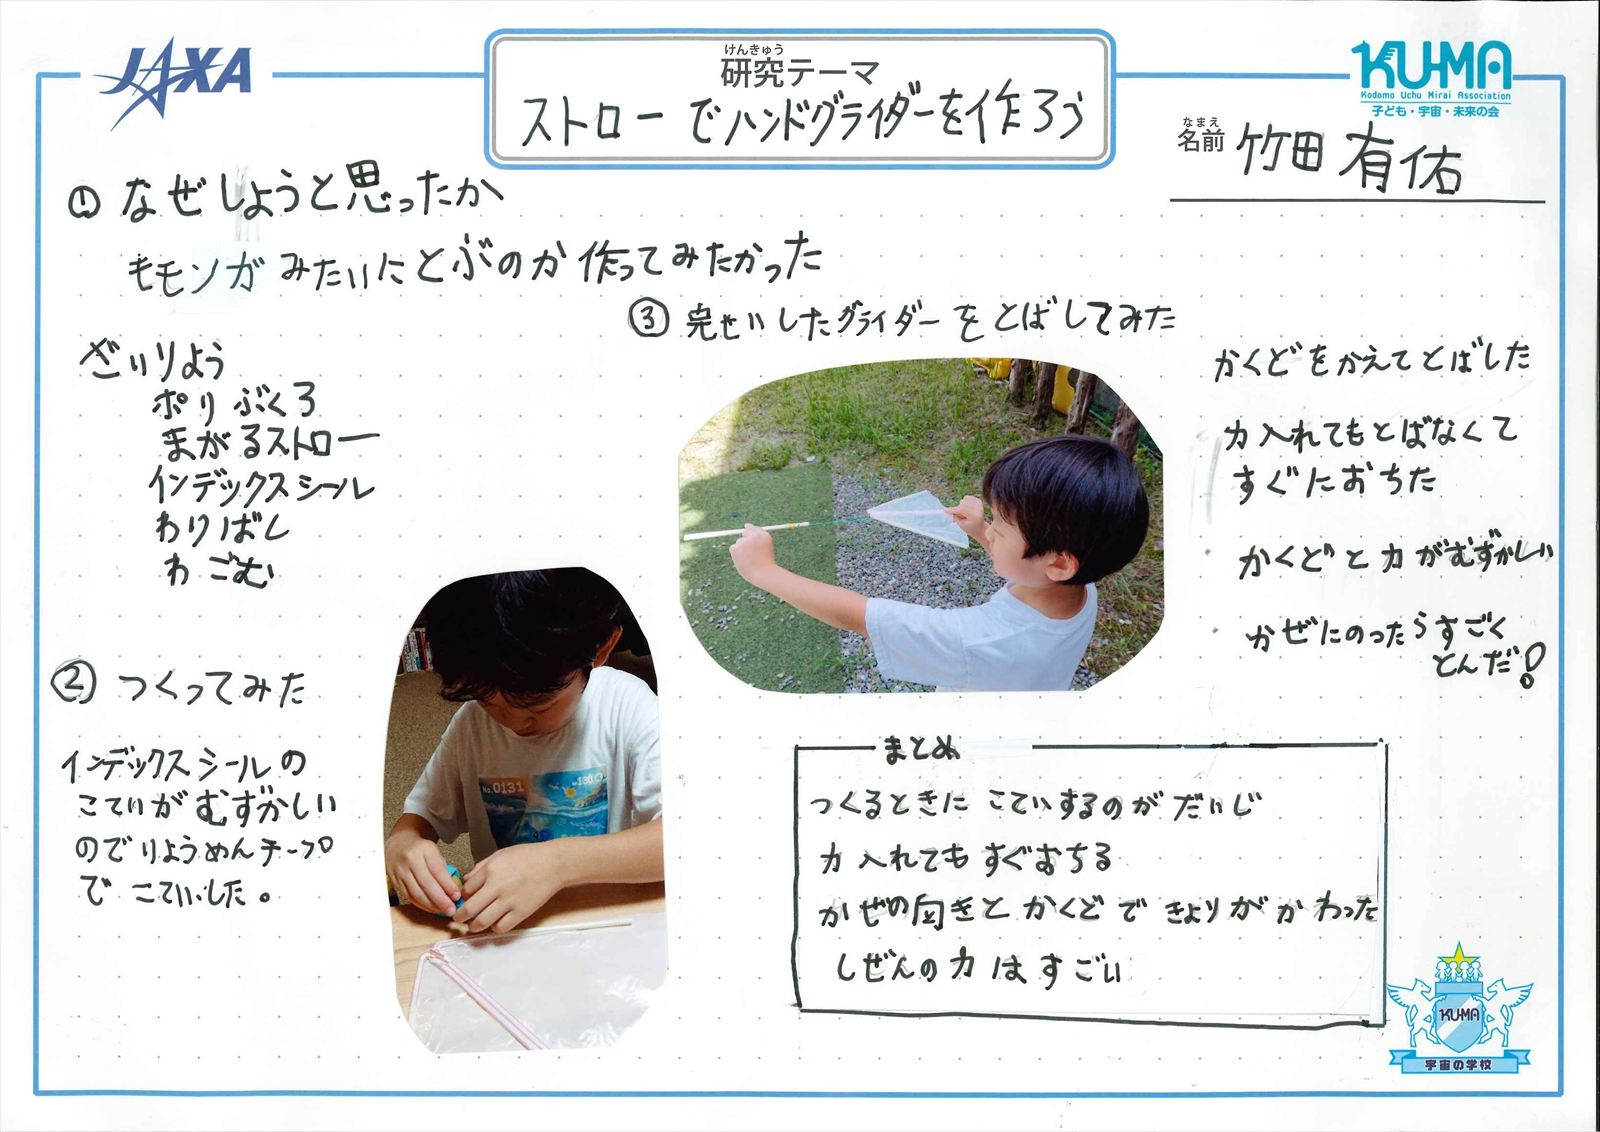 JAXA
けんきゅう
研究テーマ
ストローでハンドグライダーを作ろう
KU-MA
Kodomo Uchu Mirai Association
子ども・宇宙・未来の会
なまえ
名前 竹田 有佑
① なぜしようと思ったか
モモンガみたいにとぶのか作ってみたかった
ざいりよう
ポリぶくろ
まがるストロー
インデックスシール
わりばし
わごむ
② つくってみた
インデックスシールの
こていがむずかしい
のでりょうめんテープ
でこていした。
No.0131
③ 完せいしたグライダーをとばしてみた
かくどをかえてとばした
力入れてもとばなくて
すぐにおちた
かくどと力がむずかしい
かぜにのったらすごく
とんだ!
まとめ
つくるときにこていするのがだいじ
力入れてもすぐおちる
かぜの向きとかくどできょりがかわった
しぜんの力はすごい
KU-MA
宇宙の学校